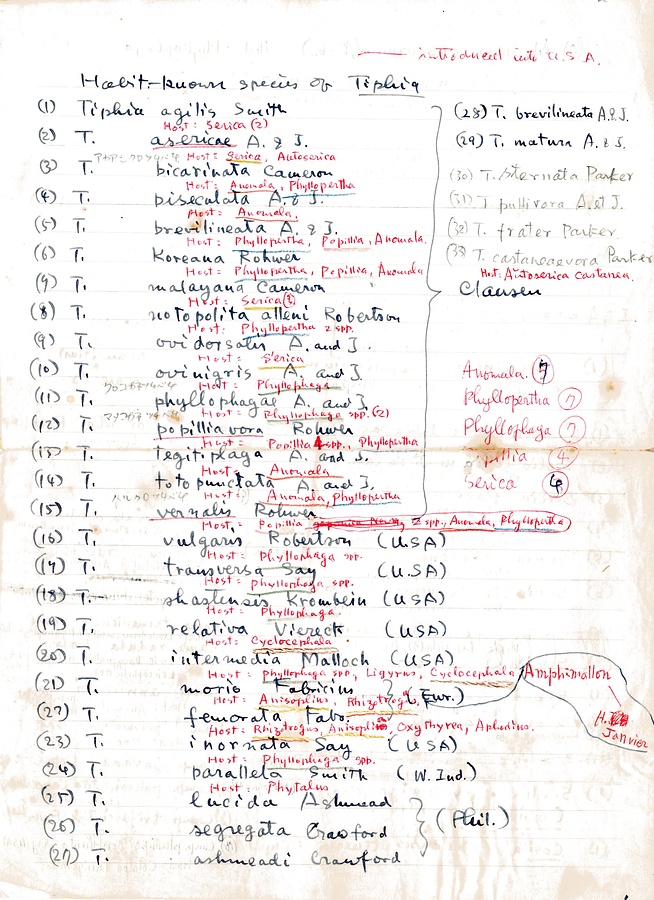 introduced into U.S.A.
Habit-known species of Tiphia
(1) Tiphia agilis Smith
Host: Serica (2)
(2) T. asericae A. & J.
Host: Serica, Autoserica
(3) T. bicarinata Cameron
Host: Anomala, Phyllopertha
(4) T. biseculata A. & J.
Host: Anomala,
(5) T. brevilineata A. & J.
Host: Phyllopertha, Popillia, Anomala.
(6) T. Koreana Rohwer
Host: Phyllopertha, Popillia, Anomala
(7) T. malayana Cameron
Host: Serica(?)
(8) T. notopolita alleni Robertson
Host: Phyllopertha 2 spp.
(9) T. ovidorsalis A. and J.
Host: Serica
(10) T. ovinigris A. and J.
Host: Phyllophaga
(11) T. phyllophagae A. and J.
Host: Phyllophaga spp. (2)
(12) T. popilliavora Rohwer
Host: Popillia 4 spp., Phyllopertha
(13) T. tegitiplaga A. and J.
Host: Anomala
(14) T. totopunctata A. and J.
Host: Anomala, Phyllopertha
(15) T. vernalis Rohwer
Host: Popillia 2 spp., Anomala, Phyllopertha
(16) T. vulgaris Robertson (USA)
Host: Phyllophaga spp.
(17) T. transversa Say (U.SA)
Host: phyllophaga spp.
(18) T. shastensis Krombein (USA)
Host: Phyllophaga.
(19) T. relativa Viereck (USA)
Host: Cyclocephala
(20) T. intermedia Malloch (USA)
Host: phyllophaga spp., Ligyrus, Cyclocephala
(21) T. morio Fabricius (Eur.)
Host: Anisoplius, Rhizotrogus
(22) T. femorata Fabr.
Host: Rhizotrogus, Anisoplia, Oxythyrea, Aphodius.
(23) T. inornata Say (USA)
Host: Phyllophaga spp.
(24) T. parallela Smith (W. Ind.)
Host: Phytalus
(25) T. lucida Ashmead
(26) T. segregata Crawford (Phil.)
(27) T. ashmeadi Crawford
(28) T. brevilineata A. & J.
(29) T. matura A. & J.
(30) T. sternata Parker
(31) T pullivora A. et J.
(32) T. frater Parker
(33) T. castaneaevora Parker
Host: Autoserica castanea.
Clausen
Anomala. 7
Phyllopertha 7
Phyllophaga 7
Popillia 4
Serica 4
Amphimallon
H. Janvier